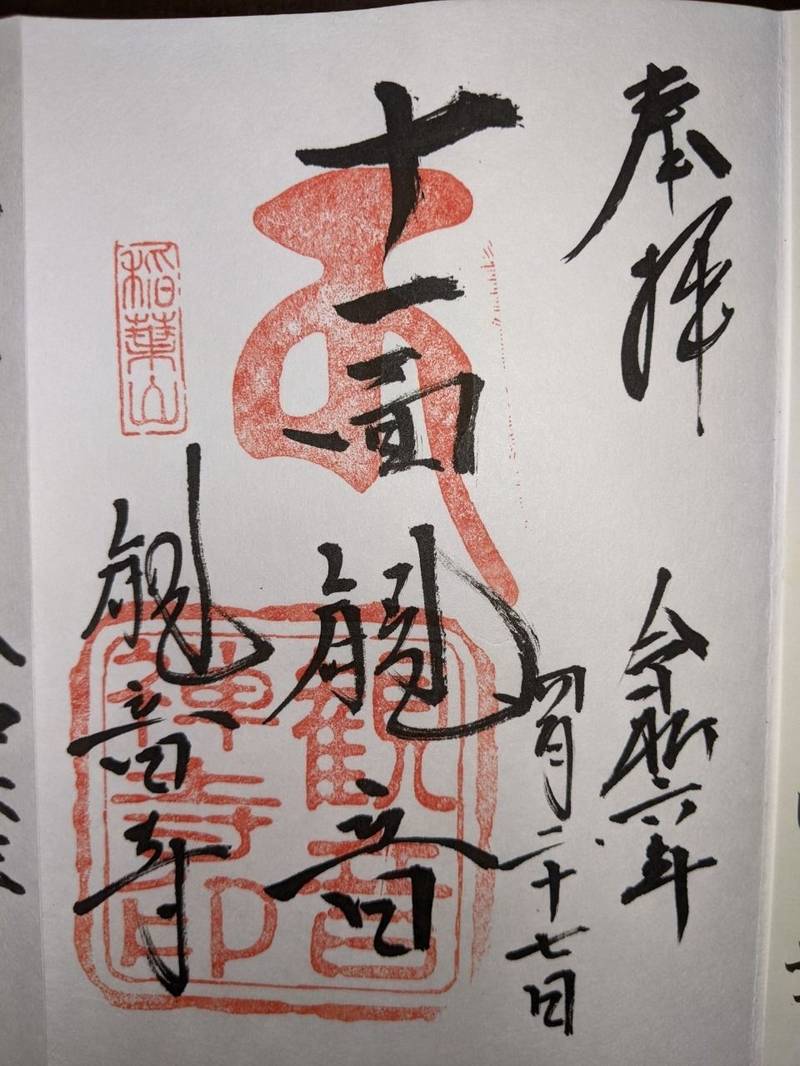 奉拝
令和六年
四月二十七日
十一面
観音
稲葉山
観音寺
観音
禅寺印